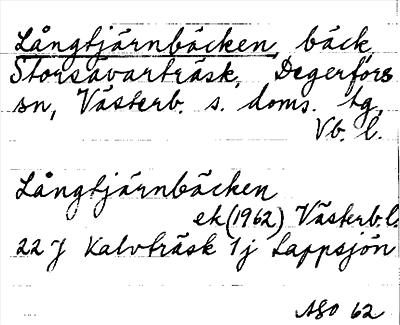 Långtjärnbäcken, bäck,
Storsävarträsk, Degerfors
sn, Västerb. s. doms. tg,
Vb. l.
Långtjärnbäcken
ek (1962) Västerb. l.
22 J Kalvträsk 1j Lappsjön
ASO 62